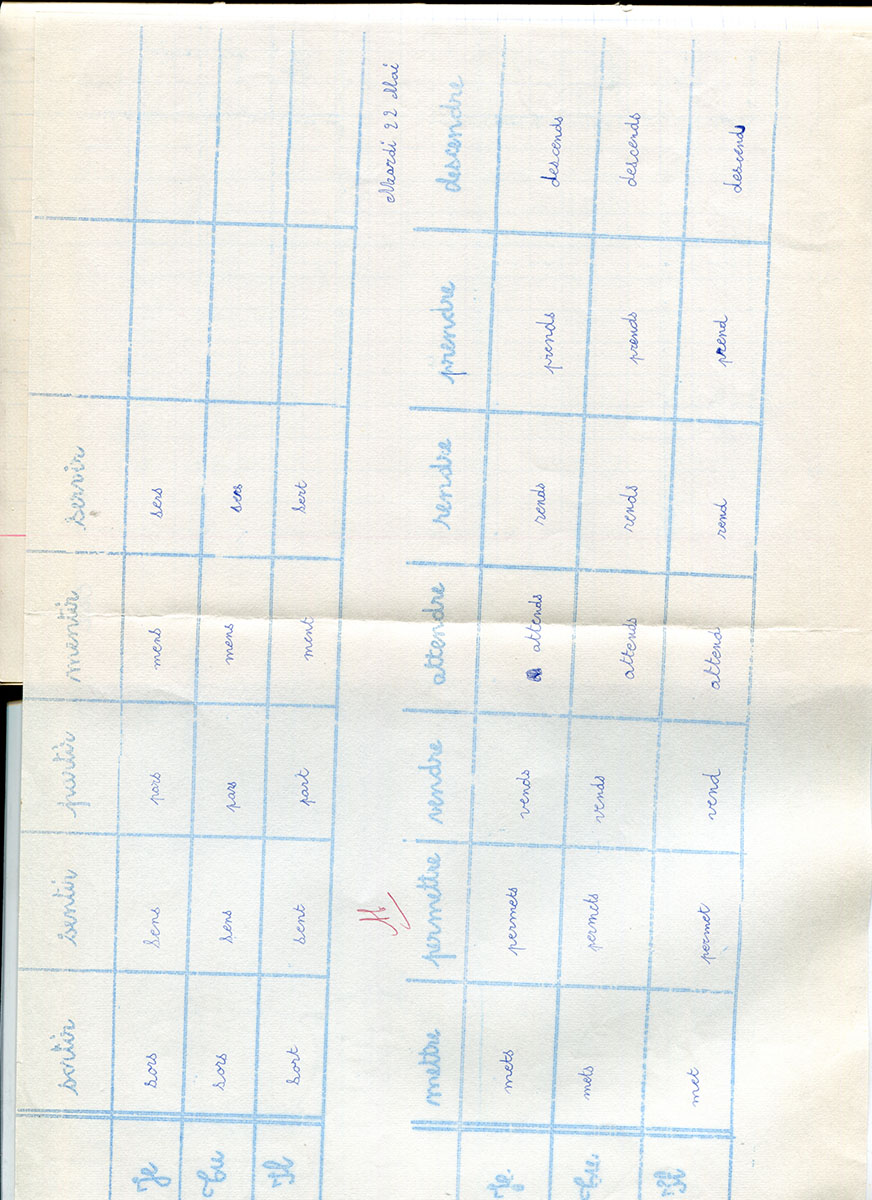 sortir sentir partir mentir servir
Je sors sens pars mens sers
Tu sors sens pars mens sers
Il sort sent part ment sert
Mardi 22 Mai
mettre permettre vendre attendre rendre prendre descendre
Je mets permets vends attends rends prends descends
Tu mets permets vends attends rends prends descends
Il met permet vend attend rend prend descend